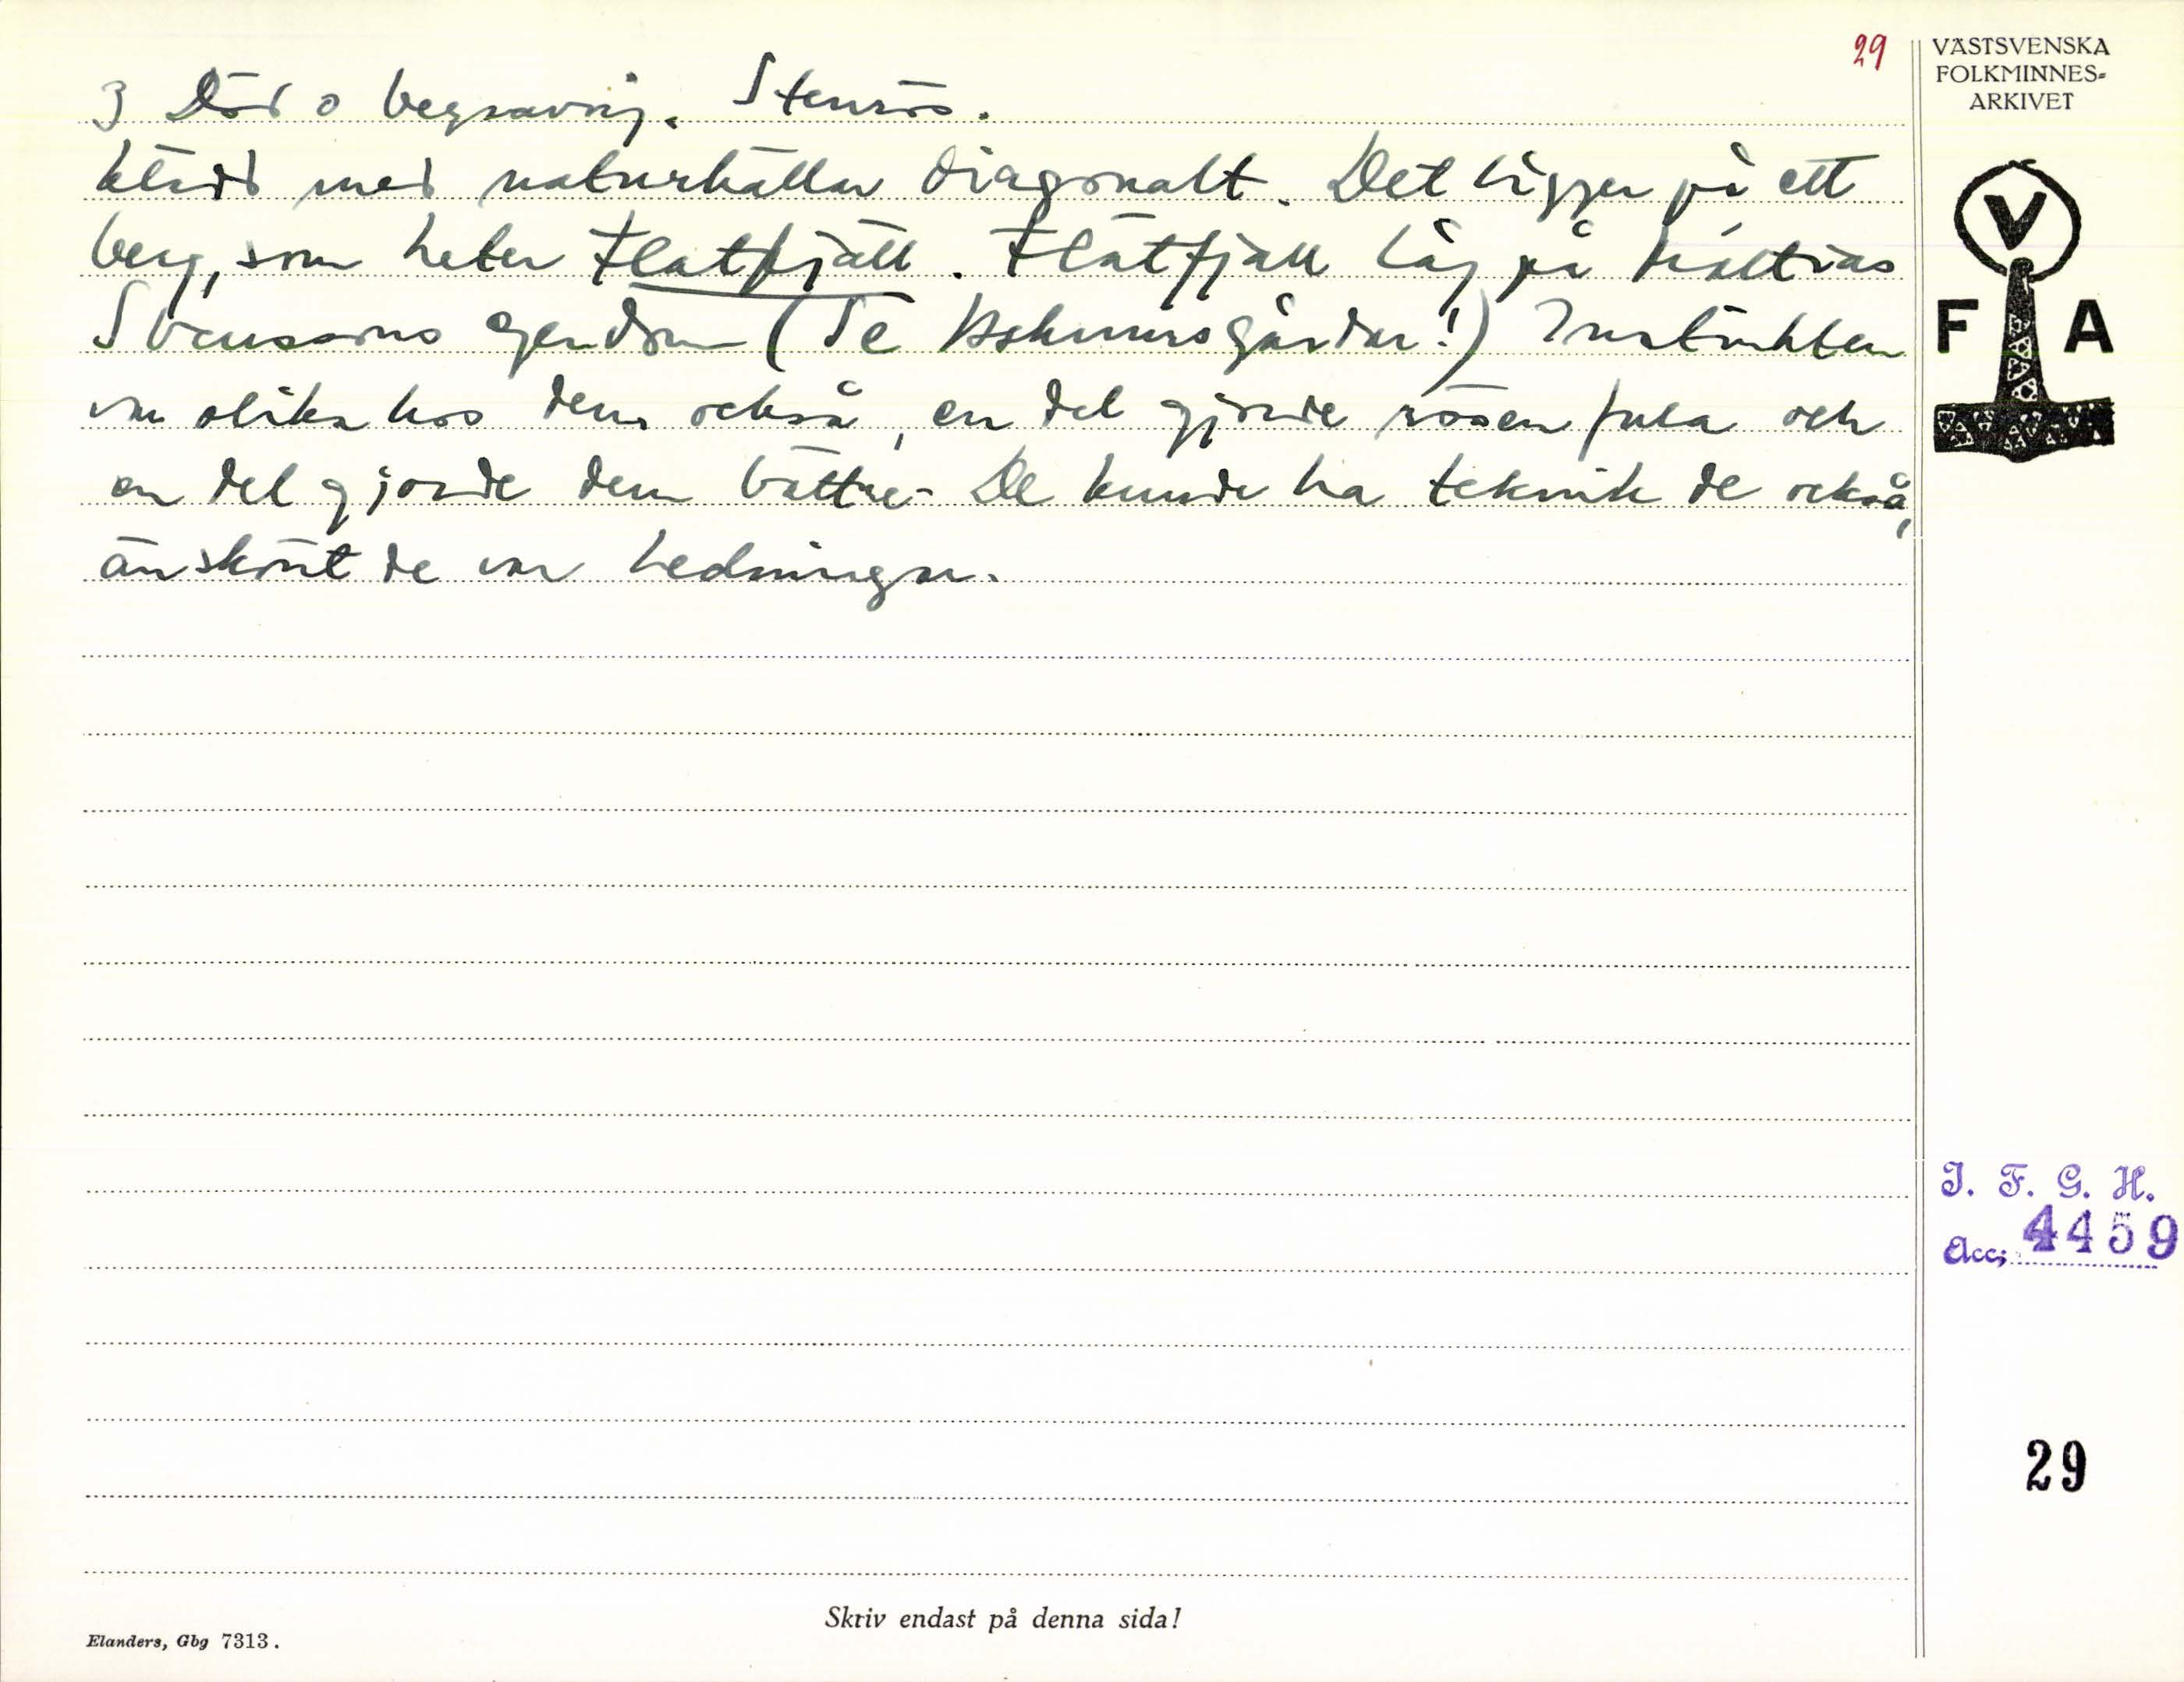 29
3 Död o begravnig. Stenrös.
klädd med naturhällar diagonalt. Det ligger på ett
berg, som heter Flatfjäll. Flatfjäll låg på Mattias
Svenssons egendom (Se gårdar!) Instinkten
var olika hos dem också, en del gjorde rösen fula och
en del gjorde dem bättre. De kunde ha teknik de också,
änskönt de var hedningar.
VÄSTSVENSKA
FOLKMINNES-
ARKIVET
V
F A
I. F. G. H.
Acc. 4459
29
Skriv endast på denna sida!
Elanders, Gbg 7313.